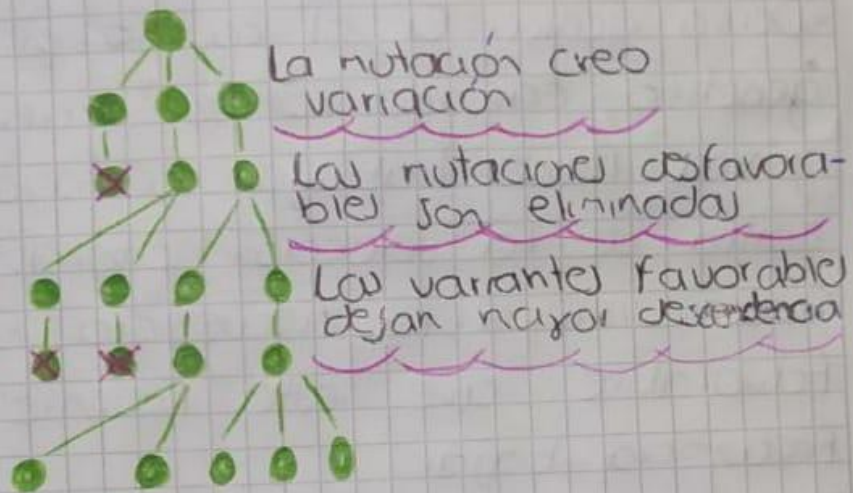 La mutación creo
variación
Las mutaciones desfavora-
bles son eliminadas
Las variantes favorables
dejan mayor descendencia